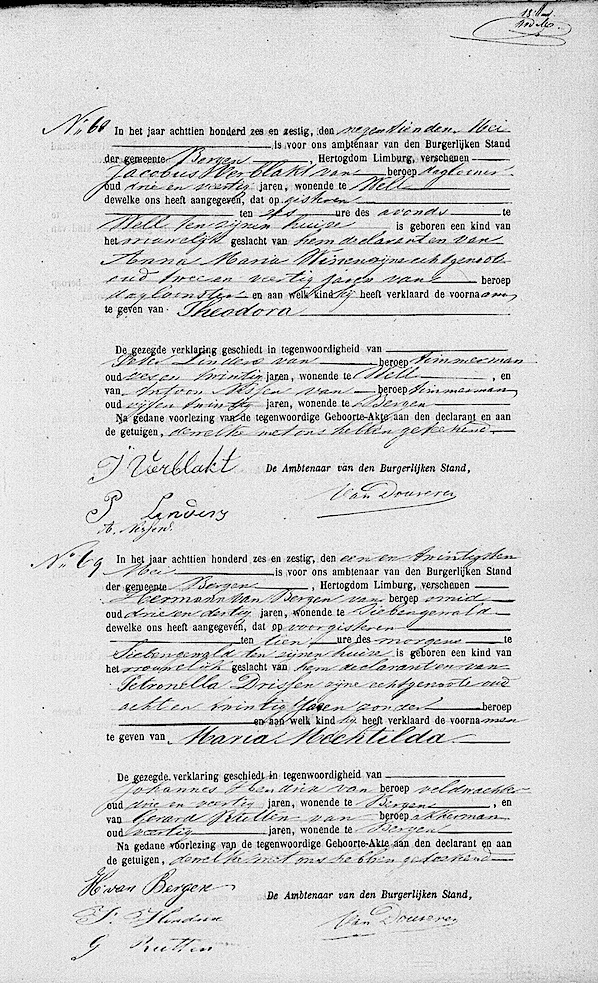 No 68 In het jaar achttien honderd zes en zestig, den negentienden Mei
is voor ons ambtenaar van den Burgerlijken Stand
der gemeente Bergen, Hertogdom Limburg, verschenen
Jacobus Verblakt van beroep daglooner
oud drie en veertig jaren, wonende te Well
dewelke ons heeft aangegeven, dat op gisteren
ten zes ure des avonds te
Well ten zijnen huize is geboren een kind van
het geslacht van hem declarant en van
Anna Maria zijne echtgenoote
oud twee en veertig jaren van beroep
dagloonster en aan welk kind hij heeft verklaard de voornaam
te geven van Theodora
De gezegde verklaring geschiedt in tegenwoordigheid van
Peter Linders van beroep timmerman
oud zes en twintig jaren, wonende te Well, en
van van beroep timmerman
oud vijf en twintig jaren, wonende te Bergen
Na gedane voorlezing van de tegenwoordige Geboorte-Akte aan den declarant en aan
de getuigen, dewelke met ons hebben geteekend
J Verblakt De Ambtenaar van den Burgerlijken Stand,
P Linders Van Douveren
No 69 In het jaar achttien honderd zes en zestig, den een en twintigsten
Mei is voor ons ambtenaar van den Burgerlijken Stand
der gemeente Bergen, Hertogdom Limburg, verschenen
Hermann van Bergen van beroep smid
oud drie en dertig jaren, wonende te Siebengewald
dewelke ons heeft aangegeven, dat op voorgisteren
ten tien ure des morgens te
Siebengewald ten zijnen huize is geboren een kind van
het vrouwelijk geslacht van hem declarant en van
Petronella Drissen zijne echtgenoote oud
acht en twintig jaren zonder beroep
en aan welk kind hij heeft verklaard de voornamen
te geven van Maria Mechtilda
De gezegde verklaring geschiedt in tegenwoordigheid van
Johannes Hendrix van beroep veldwachter
oud drie en veertig jaren, wonende te Bergen, en
van Gerard Rutten van beroep akkerman
oud veertig jaren, wonende te Bergen
Na gedane voorlezing van de tegenwoordige Geboorte-Akte aan den declarant en aan
de getuigen, dewelke met ons hebben geteekend
H van Bergen De Ambtenaar van den Burgerlijken Stand,
J. Hendrix Van Douveren
G Rutten